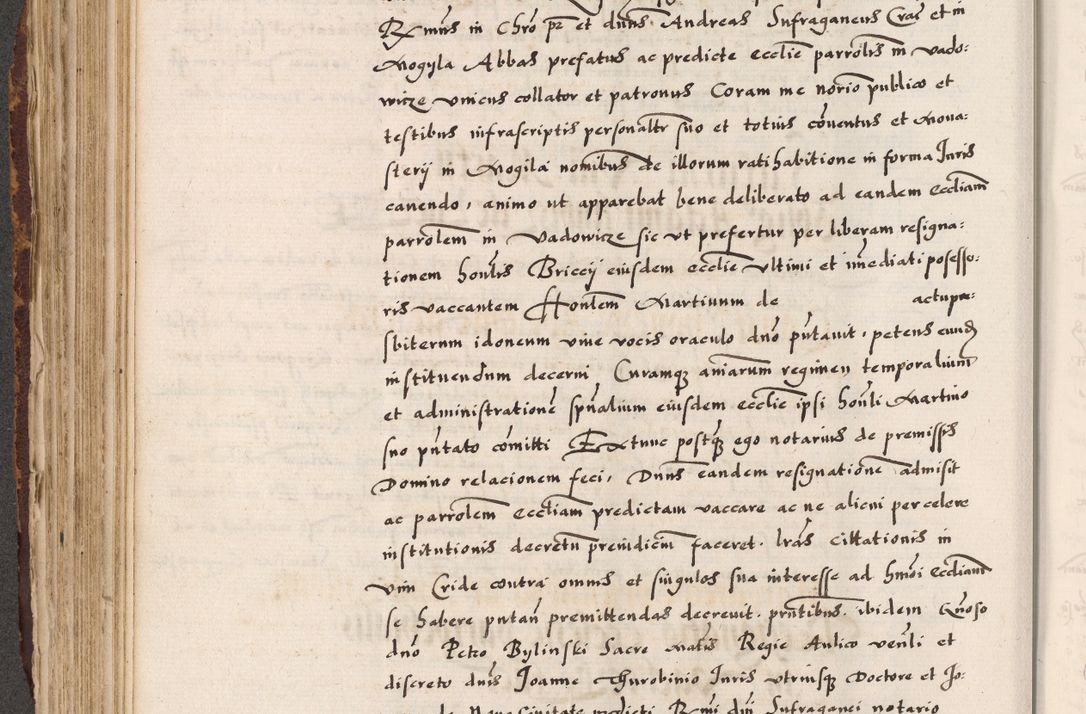 Rx mus in Chrō pr̄ et dūns Andreas Suffraganeus Crac̄ et in
Mogyla Abbas prefatus ac predicte ecclīe parrolīs in vado:
wicze vnicus collator et patronus Coram me norīo publico et
testibus infrascriptis personaltr̄ suo et totius cōuentus et Mona:
sterij in Mogilā nomībus de illorum ratihabitione in forma Iuris
cauendo, animo ut apparebat bene deliberato ad eandem ecclīam
parrolēm in Vadowicze sic ut prefertur per liberam resigna:
tionem honlīs Briccij eiusdem ecclīe vltimi et īmediati posesso:
ris vaccantem Honlēm Martinum de
sbiterum idoneum viue vocis oraculo dnō pn̄tauit, petens eund
instituendum decerni Curamq aniārum regimen temporalium
et administrationē spn̄alium eiusdem ecclīe ipsi honlī Martino
suo pn̄tato cōmitti Extunc postq̄ ego notarius de premissis
Domino relacionem feci, Dn̄us eandem resignationē admisit
ac parrolēm ecclīam predictam vaccare ac ne alicui percelere
institutionis decretū preiudiciū faceret. lrās cittationis in
vim Cride contrā omnes et singulos sua interesse ad hmōi ecclīam
se habere putan̄ premittendas decreuit. prn̄tibus. ibidem Gn̄oso
dnō Petro Bylinski Sacre Matīs Regie Aulico venlī et
discreto dn̄is Ioanne Thurobinio Iuris vtriusq Doctore et Io:
de Noua Ciuitate predicti Rmi dn̄i Suffraganei notario